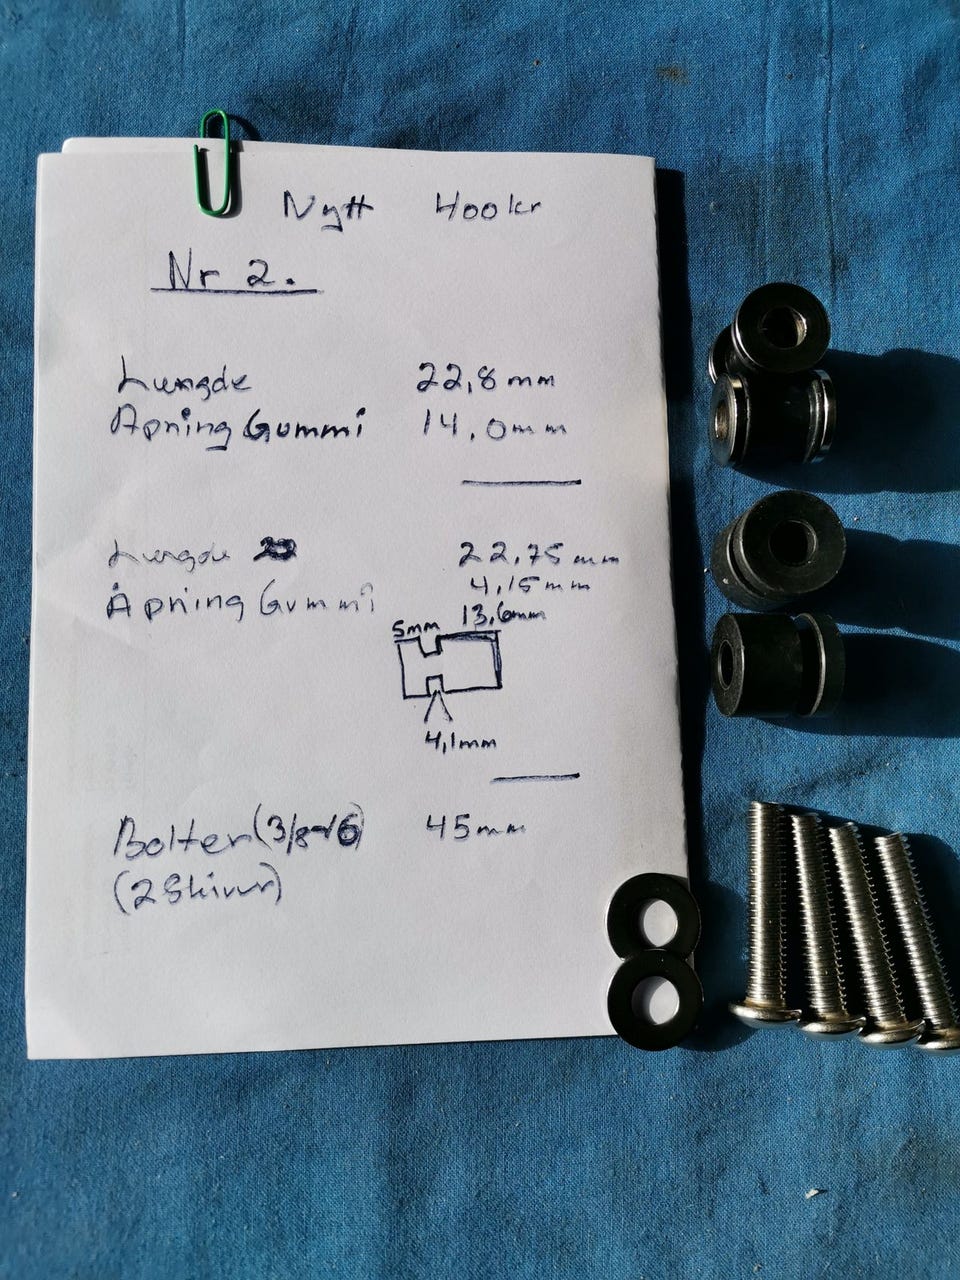 Nytt 400kr
Nr 2.
Lengde 22,8mm
Åpning Gummi 14,0mm
Lengde 22,75mm
4,15mm
Åpning Gummi
13,6mm
5mm
4,1mm
Bolter (3/8-16) 45mm
(2 Skiver)